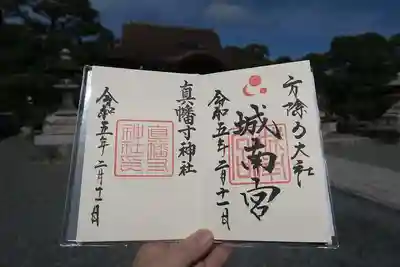 方除の大社
城南宮
令和五年二月十一日
真幡寸神社
令和五年二月十一日